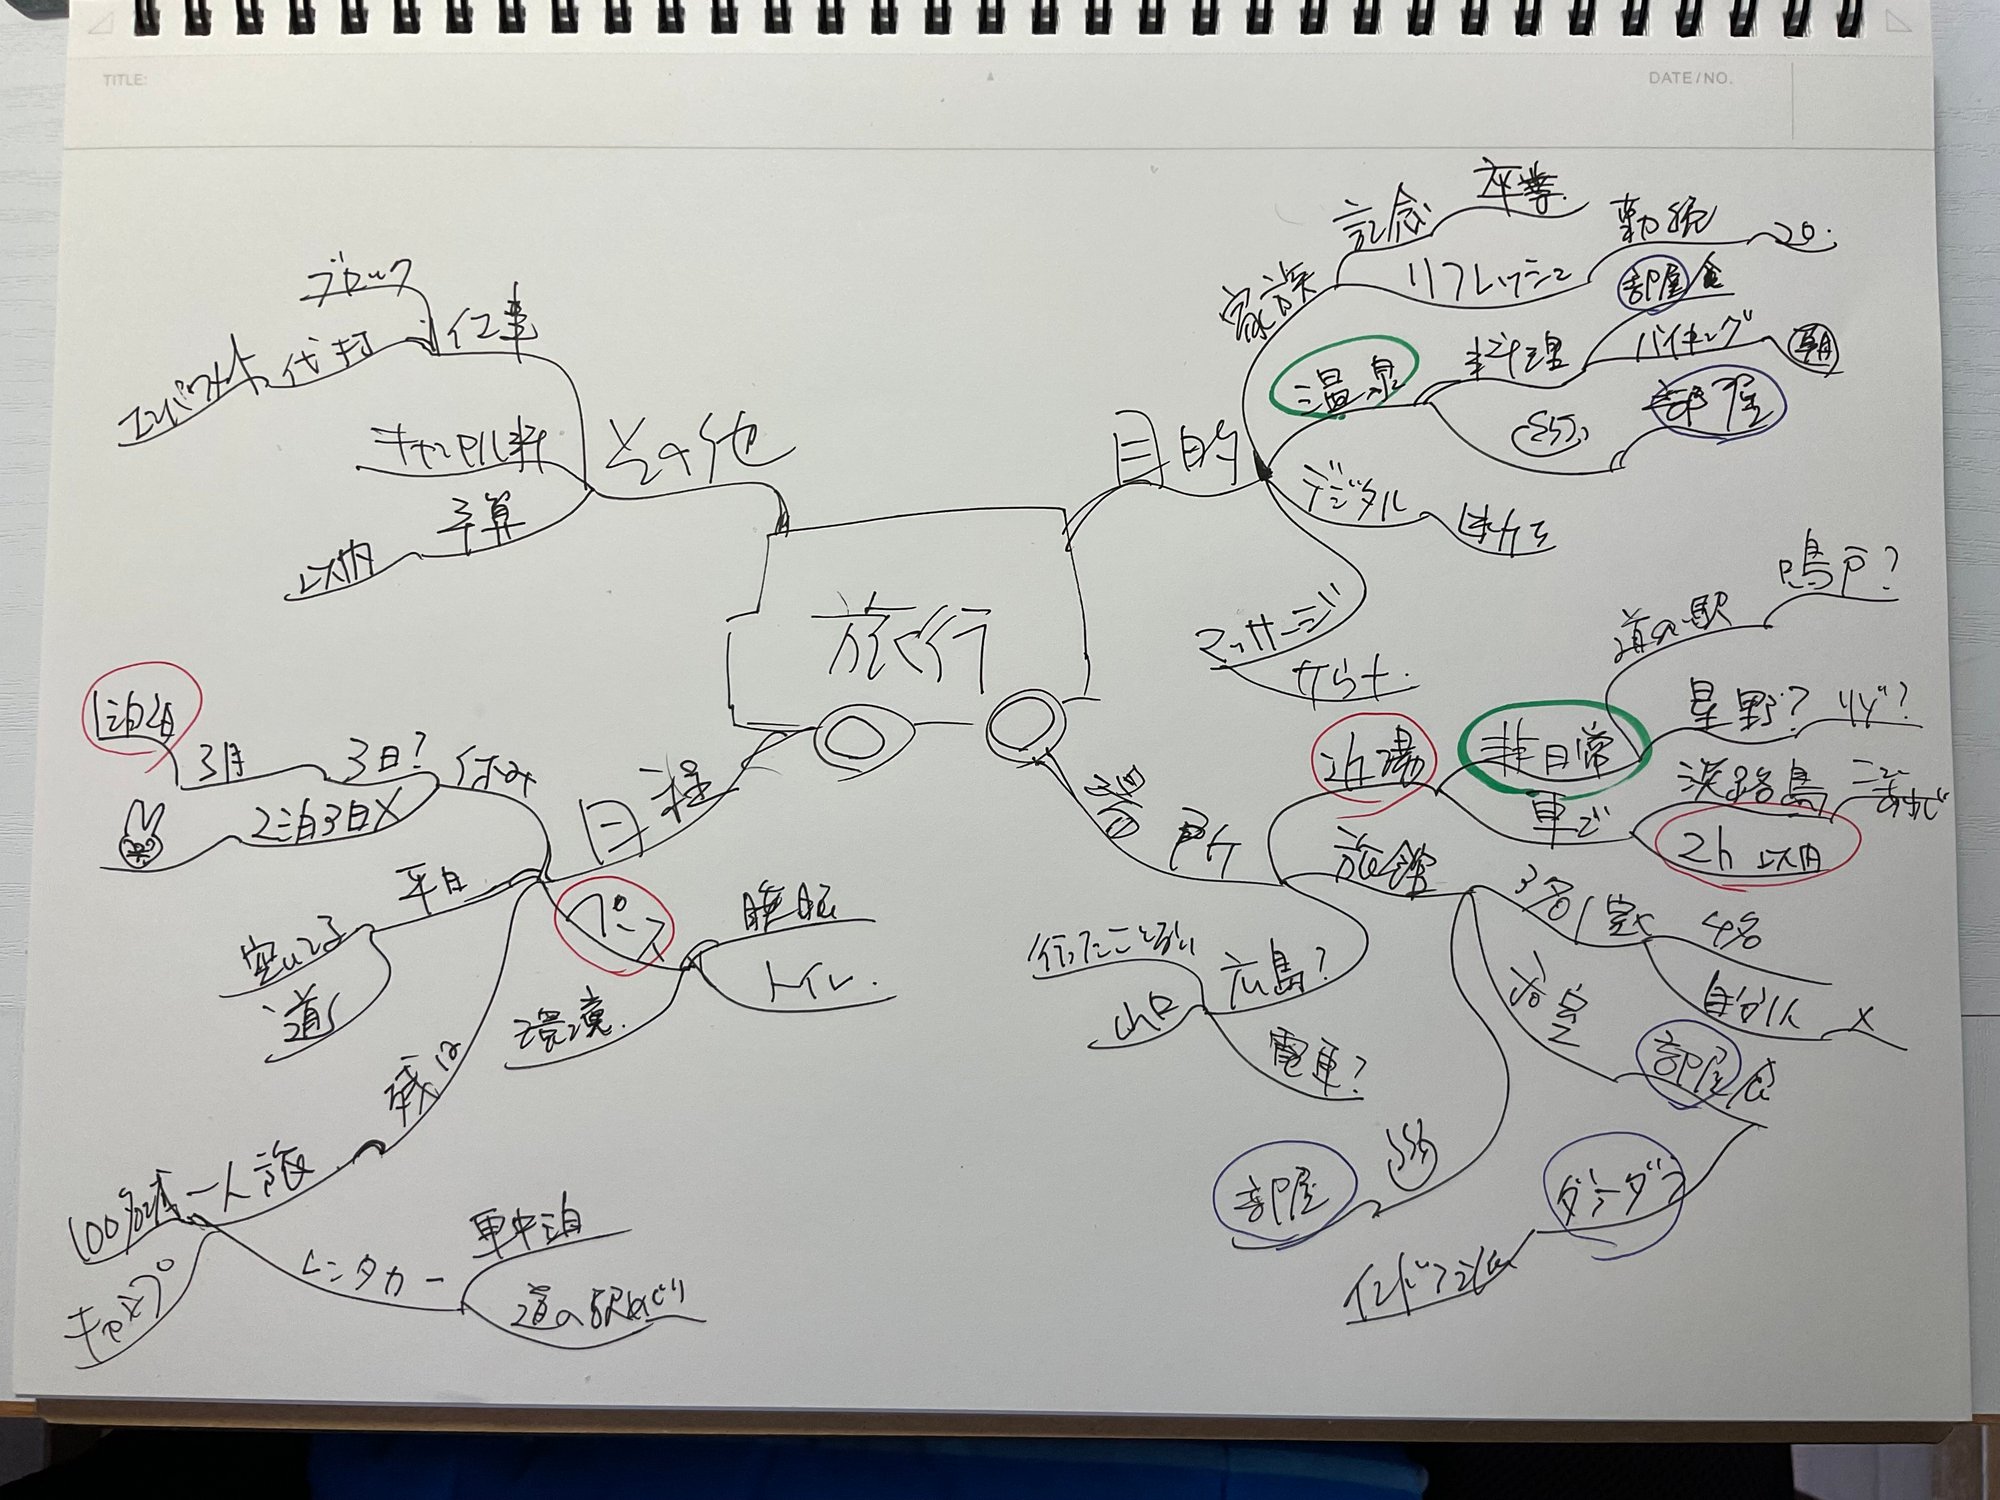 TITLE:
DATE/NO.
旅行
目的
家族
記念
卒業
リフレッシュ
勤続
20.
温泉
料理
部屋食
バイキング
朝
部屋
デジタル
マッサージ
場所
近場
非日常
道の駅
鳴戸?
星野?
車で
淡路島
2h 以内
旅館
3名1室
4名
自分1人
×
浴室
部屋食
部屋
広島?
行ったことない
山口
電車?
日程
休み
3日?
3月
1泊2日
2泊3日×
平日
空いてる
道
ペース
睡眠
トイレ.
環境.
残は
一人旅
100名城
キャンプ
レンタカー
車中泊
道の駅めぐり
その他
仕事
ブロック
代打
キャンセル料
予算
以内